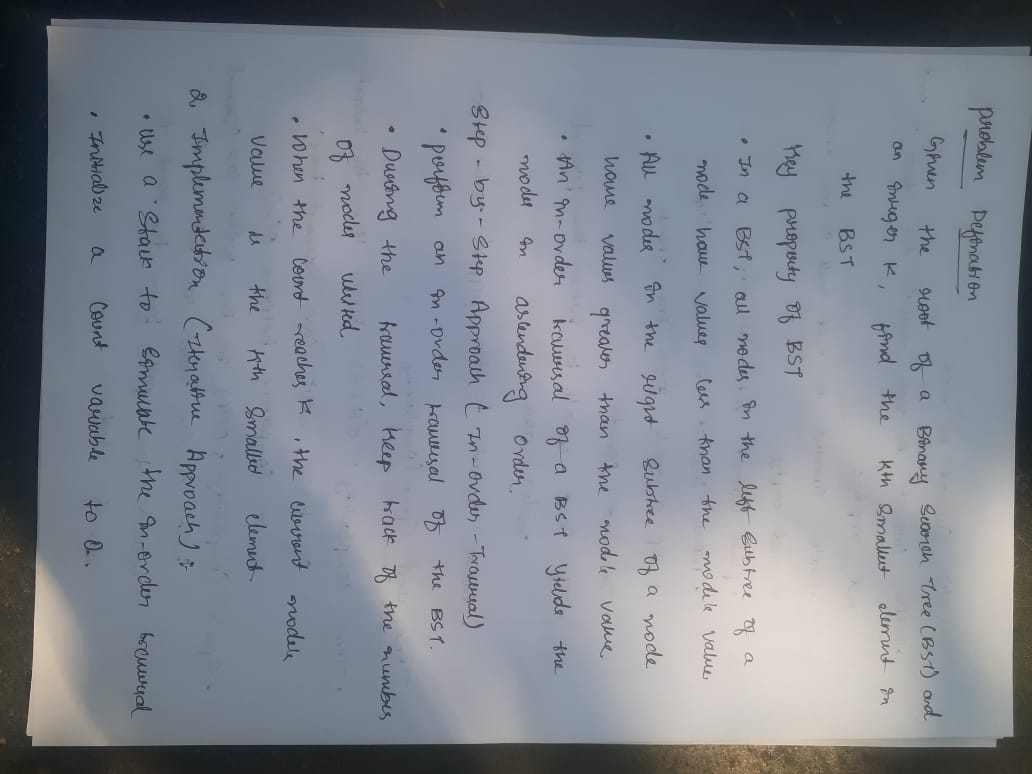 problem Defination
Given the root of a Binary Search Tree (BST) and
an integer K, find the Kth smallest element in
the BST
Key property of BST
• In a BST, all nodes in the left subtree of a
node have values less than the node's value
• All nodes in the right subtree of a node
have values greater than the node's value.
• An in-order traversal of a BST yields the
nodes in ascendening order.
Step - by - Step Approach (In-order-Traversal)
• perform an in-order traversal of the BST.
• During the traversal, keep track of the number
of nodes visited
• When the count reaches K, the current node's
value is the Kth smallest element.
2. Implementation (Iterative Approach) :
• Use a Stack to simulate the in-order traversal
• Initialize a count variable to 0.